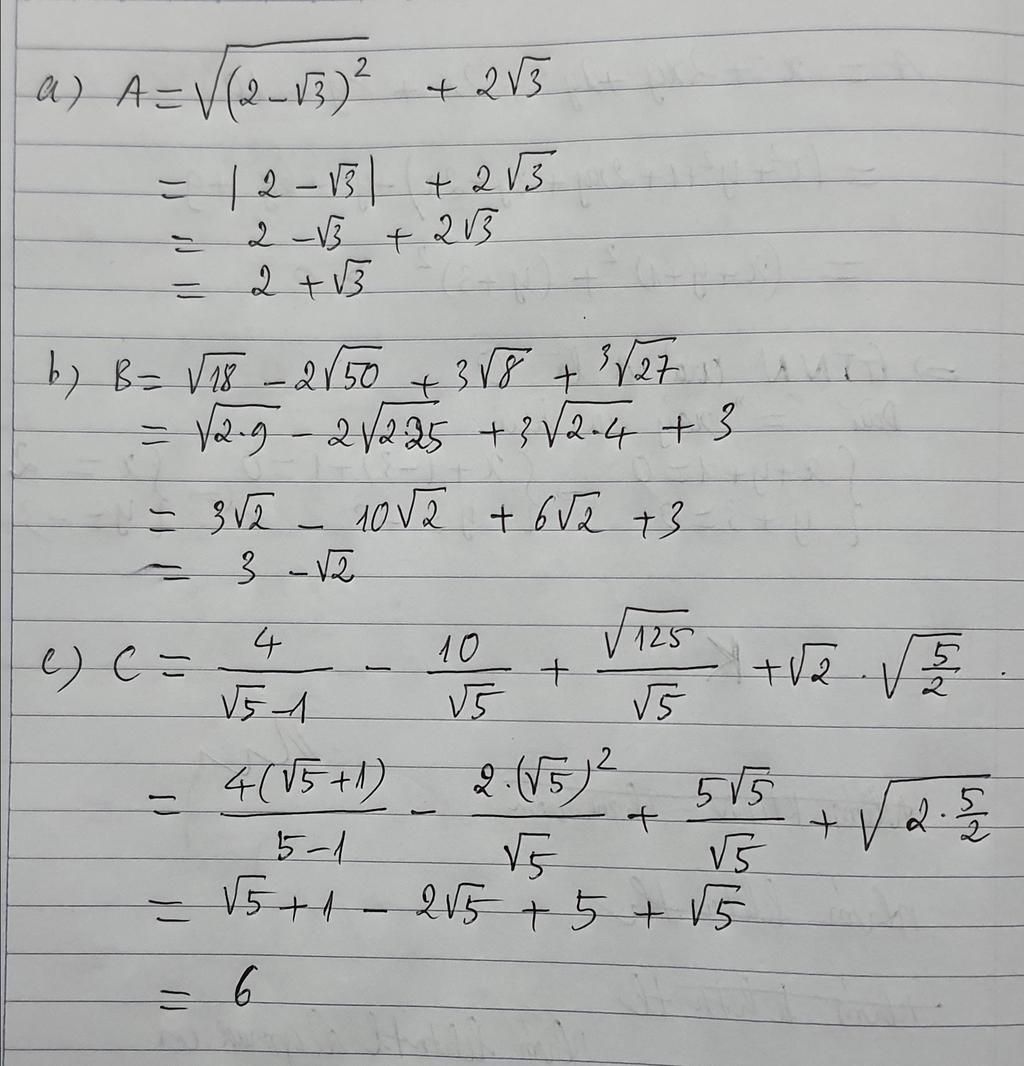 a) A = √(2 - √3)² + 2√3
= |2 - √3| + 2√3
= 2 - √3 + 2√3
= 2 + √3
b) B = √18 - 2√50 + 3√8 + ³√27
= √2·9 - 2√2·25 + 3√2·4 + 3
= 3√2 - 10√2 + 6√2 + 3
= 3 - √2
c) C = 4/(√5 - 1) - 10/√5 + √125/√5 + √2 · √(5/2) .
= 4(√5 + 1)/(5 - 1) - 2·(√5)²/√5 + 5√5/√5 + √(2 · 5/2)
= √5 + 1 - 2√5 + 5 + √5
= 6